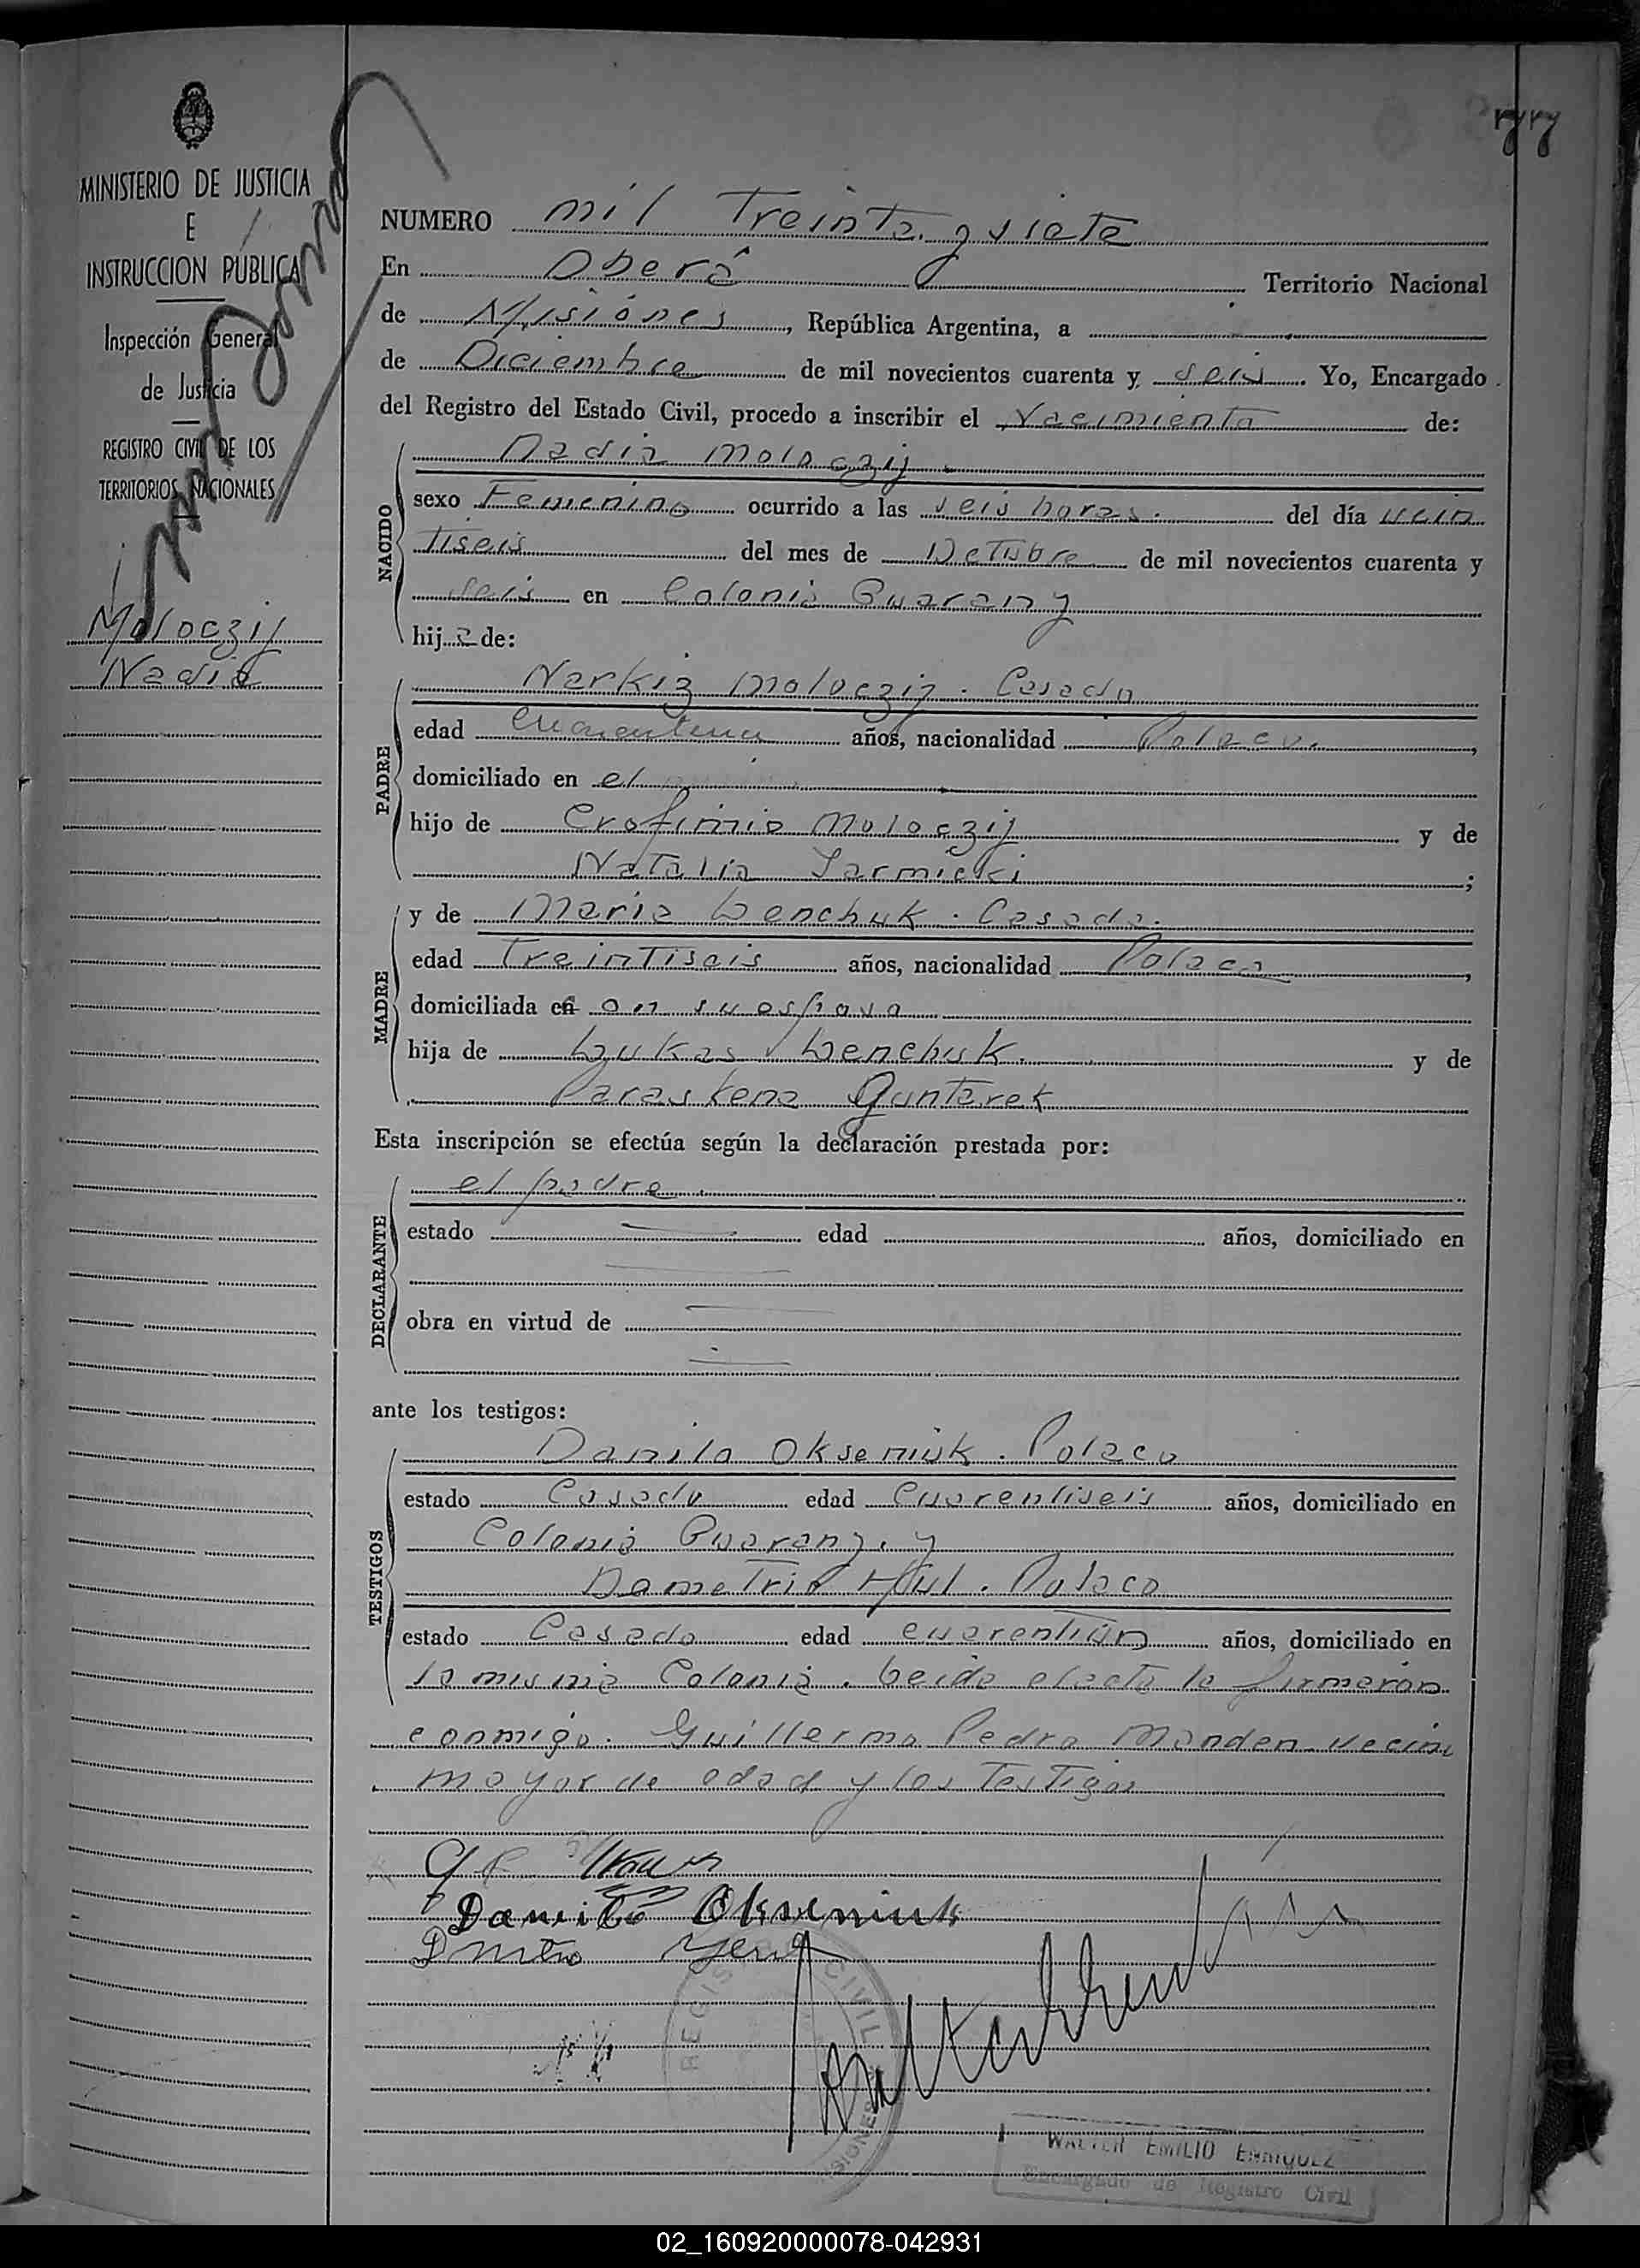 77
MINISTERIO DE JUSTICIA
E
INSTRUCCION PUBLICA
Inspección General
de Justicia
REGISTRO CIVIL DE LOS
TERRITORIOS NACIONALES
Moloczij
Nadia
NUMERO mil Treinta y siete
En Oberá Territorio Nacional
de Misiónes, República Argentina, a
de Diciembre de mil novecientos cuarenta y seis. Yo, Encargado
del Registro del Estado Civil, procedo a inscribir el Nacimiento de:
NACIDO
Nadia Moloczij
sexo Femenino ocurrido a las seis horas. del día vein
tiseis del mes de Octubre de mil novecientos cuarenta y
seis en Colonia Guarany
hija de:
PADRE
Narkiz Moloczij. Casado
edad años, nacionalidad Polaco.
domiciliado en el
hijo de Erofimio Moloczij y de
Natalia Jarmicki;
MADRE
y de Maria Lenchuk. Casada.
edad Treintiseis años, nacionalidad Polaca,
domiciliada en on su esposo
hija de Lukas Lenchuk. y de
Paraskena Guntarek
Esta inscripción se efectúa según la declaración prestada por:
DECLARANTE
el padre.
estado edad años, domiciliado en
obra en virtud de
ante los testigos:
TESTIGOS
Danilo Okseniuk. Polaco
estado Casado edad Cuarentiseis años, domiciliado en
Colonia Guarany. y
Dometrio Hul. Polaco
estado Casado edad cuarentiún años, domiciliado en
la misma Colonia. Leida el acta la firmaron
conmigo. Guillermo Pedro Monden vecino
mayor de edad y los Testigos
Danilo Okseniuk
Dmitro
REGISTRO CIVIL
MISIONES
WALTER EMILIO ENRIQUEZ
Encargado de Registro Civil
02_160920000078-042931